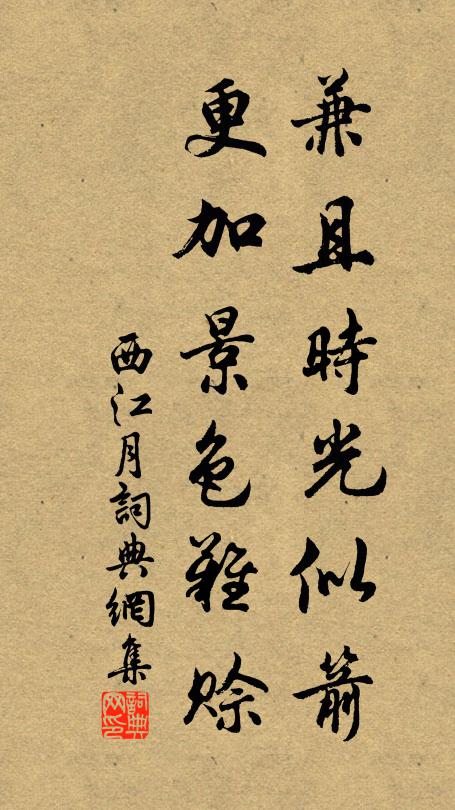 兼且時光似箭
更加景色難賒
西江月詞典網集
詞典网印